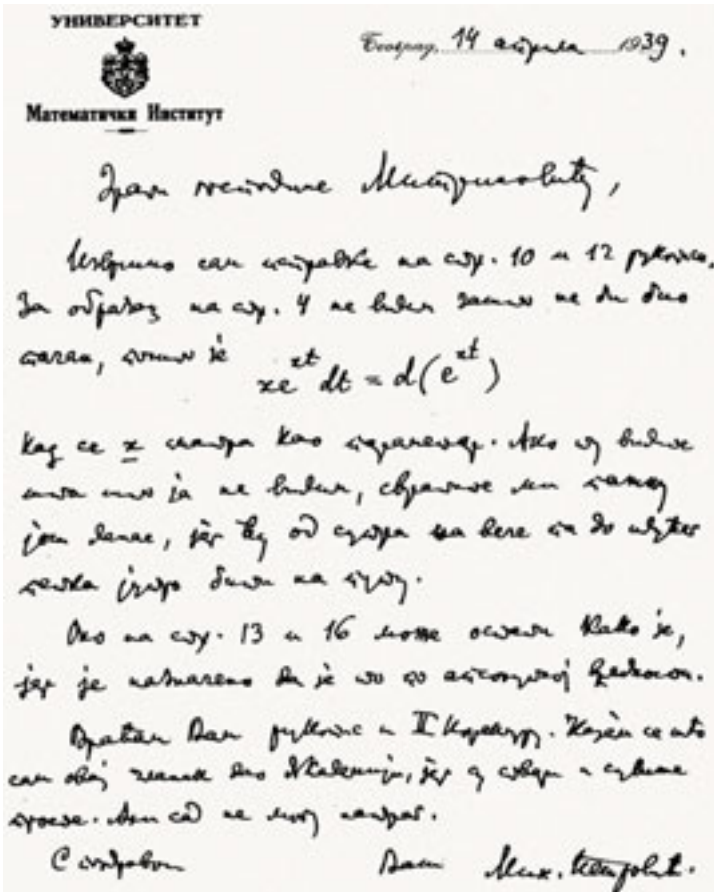 УНИВЕРСИТЕТ
Математички Институт
Београд, 14 априла 1939.
Драги господине Митриновићу,
Извршио сам исправке на стр. 10 и 12 рукописа.
За образац на стр. 4 не видим зашто не би био
тачан, пошто је
xe^{xt} dt = d(e^{xt})
Кад се x сматра као параметар. Ако ту видите
што што ја не видим, свратите ми пажњу
још данас, јер ћу од сутра на вече па до
петка јутро бити на путу.
Оно на стр. 13 и 16 може остати како је,
јер је назначено да је то по апсолутној вредности.
Враћам Вам рукопис и II коректуру. Кајем се што
сам овај чланак дао Академији, јер су ствари и сувише
просте. Али сад не могу натраг.
С поздравом
Ваш Мих. Петровић.